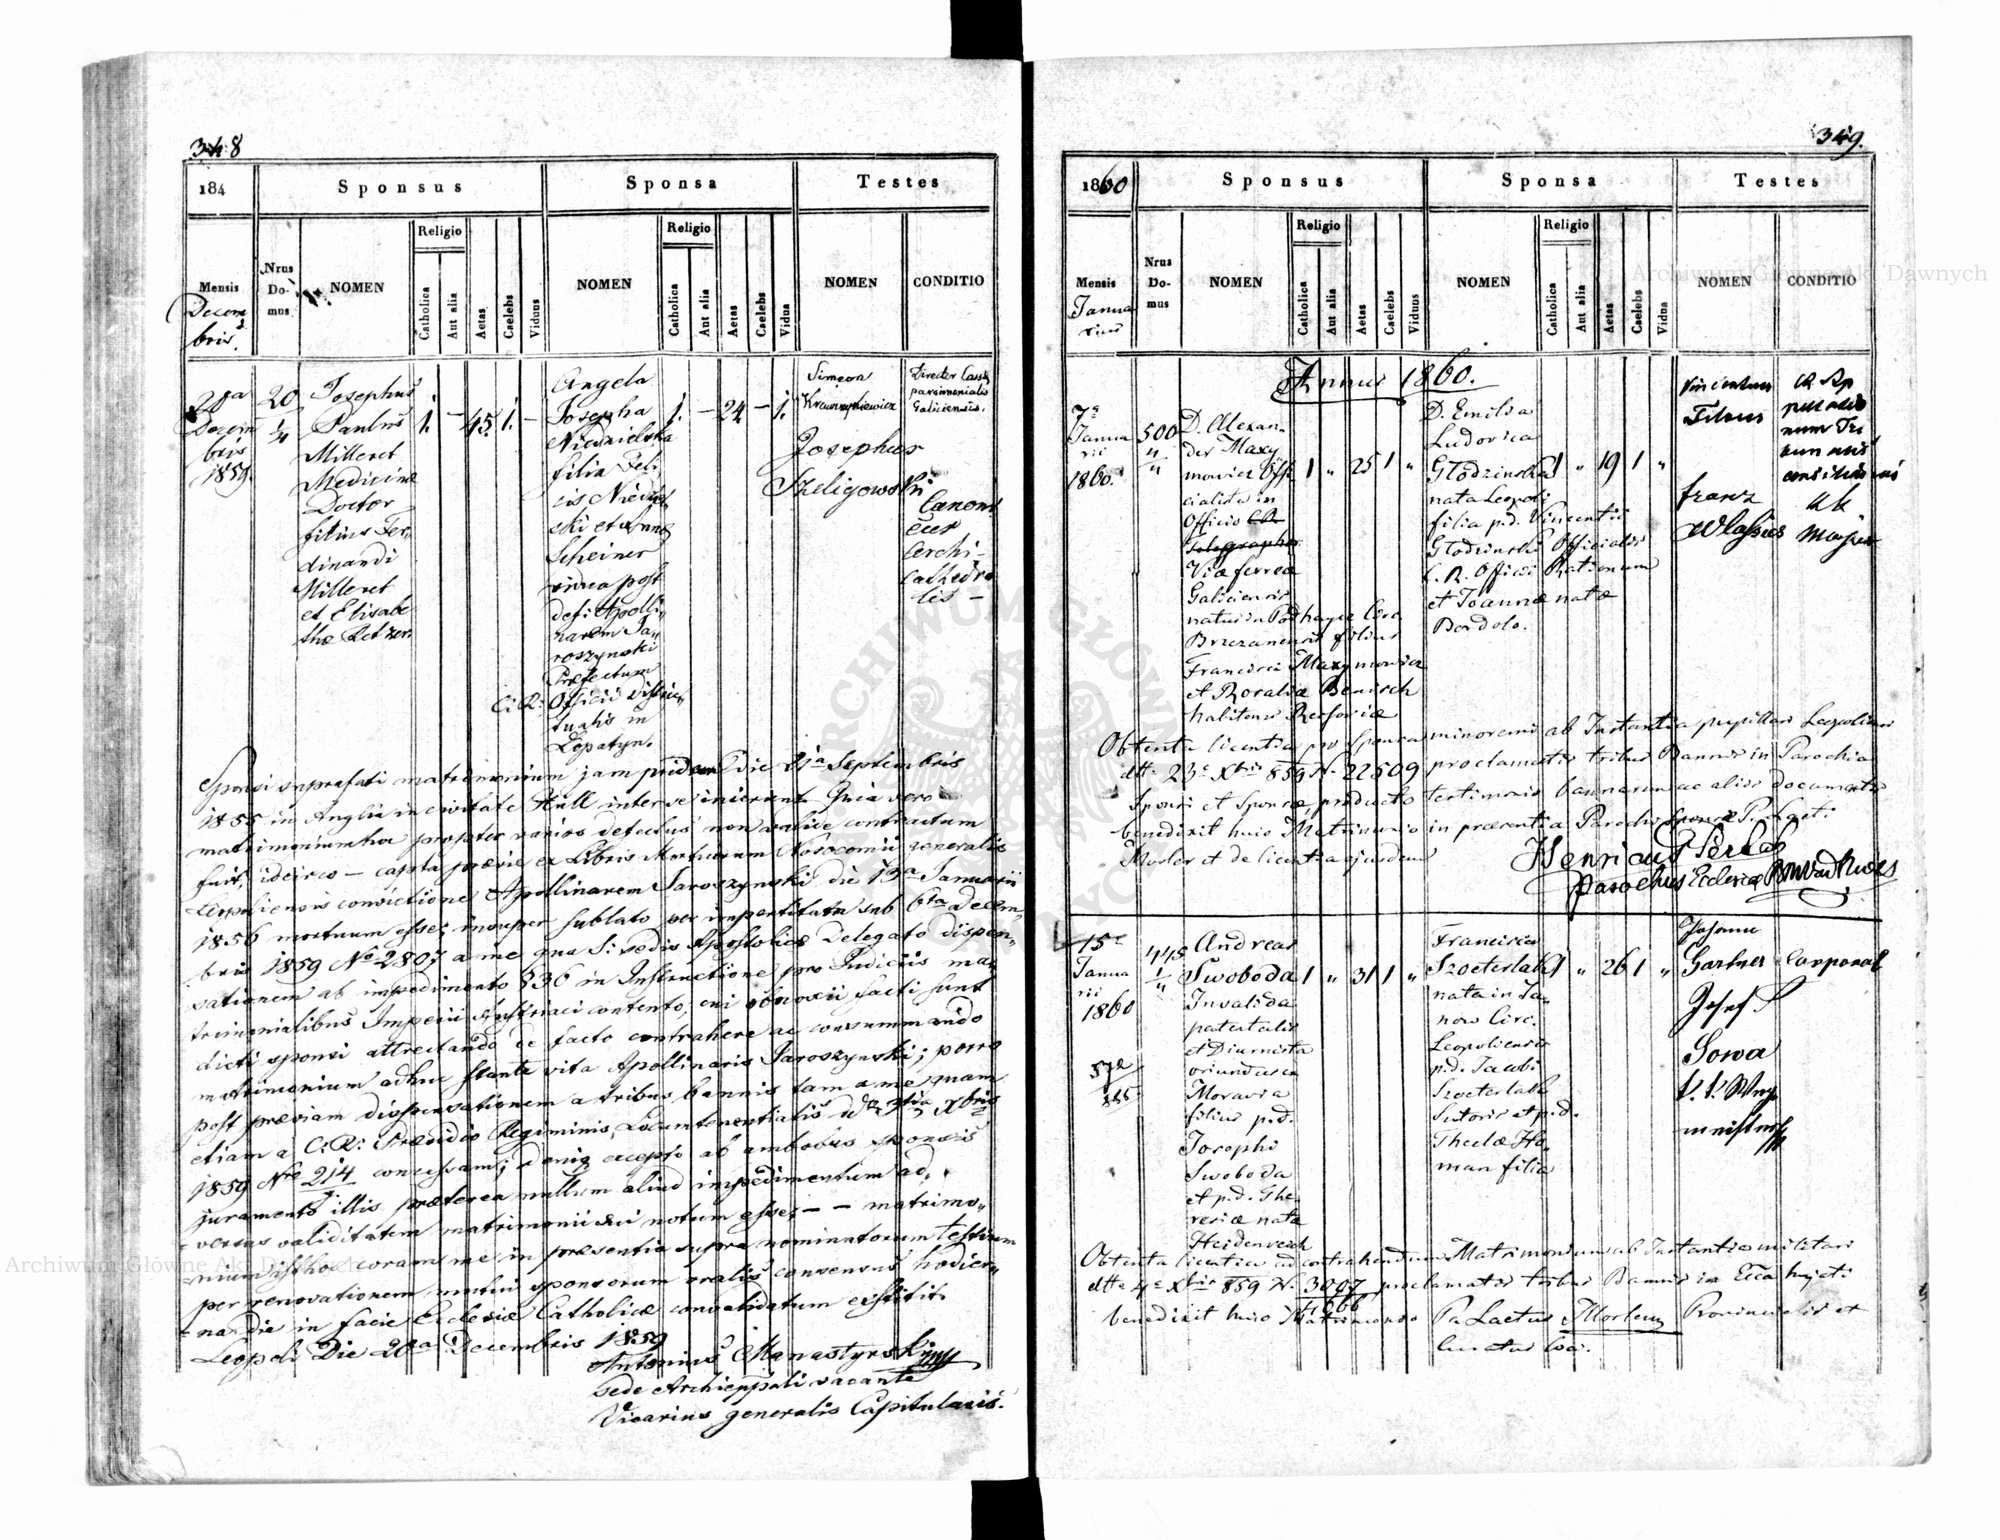 348
184
Sponsus
Sponsa
Testes
Mensis
Decem
bris.
Nrus
Do-
mus
NOMEN
Religio
Catholica
Aut alia
Aetas
Caelebs
Viduus
NOMEN
Religio
Catholica
Aut alia
Aetas
Caelebs
Vidua
NOMEN
CONDITIO
20a
Decem
bris
1859.
20
1/4
Josephus
Paulus
Milleret
Medicinæ
Doctor
filius Fer„
dinandi
Milleret
et Elisabe
thæ
1. – 45. 1. –
Angela
Josepha
Niedzielska
filia Feli
cis Niedziel
ski et Annæ
Scheiner
vidua post
def: Apolli„
narem Ja„
roszynski
Præfectum
C: R: Officii distric„
tualis in
Lopatyn.
1. – 24 – 1.
Simeon
Krawczykiewicz
Director Cassæ
parsimonialis
Galiciensis.
Josephus
Szeligowski
Canoni
cus
Archi-
Cathedra
lis –
Sponsi suprafati matrimonium jam pridem die 21a Septembris
1855 in Anglia in civitate Hull inter se inierunt. Quia vero
matrimonium hoc propter varios defectus non valide contractum
fuit, idcirco – capta prævie ex Libris Mortuorum Nosocomii generalis
Leopoliensis convictione Apollinarem Jaroszynski die 13a Januarii
1856 mortuum esse; insuper sublato per impertitam sub 6ta Decem„
bris 1859 No 2807 a me qua S: Sedis Apostolicæ Delegato dispen„
sationem ab impedimento §36 in Instructione pro Judiciis ma„
trimonialibus Imperii Austriaci contento, cui obnoxii facti sunt
dicti sponsi attrectando de facto contrahere ac consummando
matrimonium adhuc stante vita Apollinaris Jaroszynski; porro
post præviam dispensationem a tribus bannis tam a me quam
etiam a C: R: Præsidio Regiminis Locumtenentialis ddto 3tia Xbris
1859 Nro 214 concessam; deniq excepto ab ambobus sponsis
juramento illis præterea nullum aliud impedimentum ad„
versus validitatem matrimonii sui notum esse; – – matrimo„
nium isthoc coram me in præsentia supra nominatorum Testium
per renovationem mutui sponsorum oralis consensus hodier„
na die in facie Ecclesiæ Catholicæ convalidatum existit.
Leopoli Die 20a Decembris 1859
Antonius Manastyrski
Sede Archieppali vacante
Vicarius generalis Capitularis.
349.
1860
Sponsus
Sponsa
Testes
Mensis
Janua
rius
Nrus
Do-
mus
NOMEN
Religio
Catholica
Aut alia
Aetas
Caelebs
Viduus
NOMEN
Religio
Catholica
Aut alia
Aetas
Caelebs
Vidua
NOMEN
CONDITIO
Annus 1860.
7a
Janua
rii
1860.
500
4/4
D. Alexan„
der Maxy
mowicz Offi
cialista in
Officio C.R.
Telegrapho
Viæ ferreæ
Galiciensis
natus in Podhayce Circ.
Brzezanensis filius
Francisci Maxymowicz
et Rosaliæ Benisch
habitans Resoviæ
1 „ 25 1 „
D. Emilia
Ludovica
Głodzinska
nata Leopoli
filia p.d. Vincentii
Głodzinski Officialis
C. R. Officii Rationum
et Joannæ natæ
Bardolo.
1 „ 19 1 „
Vincentius
Franz
Major
Obtenta licentia pro Sponsa minorenni ab Instantia pupillari Leopoliensi
dtto 23a Xbris 859 N. 22509 proclamatis tribus Bannis in Parochia
Sponsi et Sponsæ, producto testimonio bannorum ac aliis documentis
benedixit huic Matrimonio in præsentia Parochi Sponsæ P. Laeti
Morler et de licentia ejusdem
Henricus
Parochus Ecclesiæ
15a
Janua
rii
1860
445
1/4
Andreas
Swoboda
Invalida
patentalis
et Diurnista
oriundus ex
Moravia
filius p.d.
Josephi
Swoboda
et p.d. The
resiæ natæ
Heidenreich
1 „ 31 1 „
Francisca
nata in Ja„
now Circ.
Leopoliensis
p.d. Jacobi
Sutoris et p.d.
Theclæ Ho„
man filia
1 „ 26 1 „
Johann
Gartner
Corporal
Josef
Sowa
Obtenta licentia ad contrahendum Matrimonium ab Instantia militari
dtto 4a Xbris 859 N. 3007 proclamatis tribus Bannis in Ecca hujate
benedixit huic Matrimonio Pa Laetus Morler Provincialis et
Curatus loci.
Archiwum Główne Akt Dawnych
Archiwum Główne Akt Dawnych